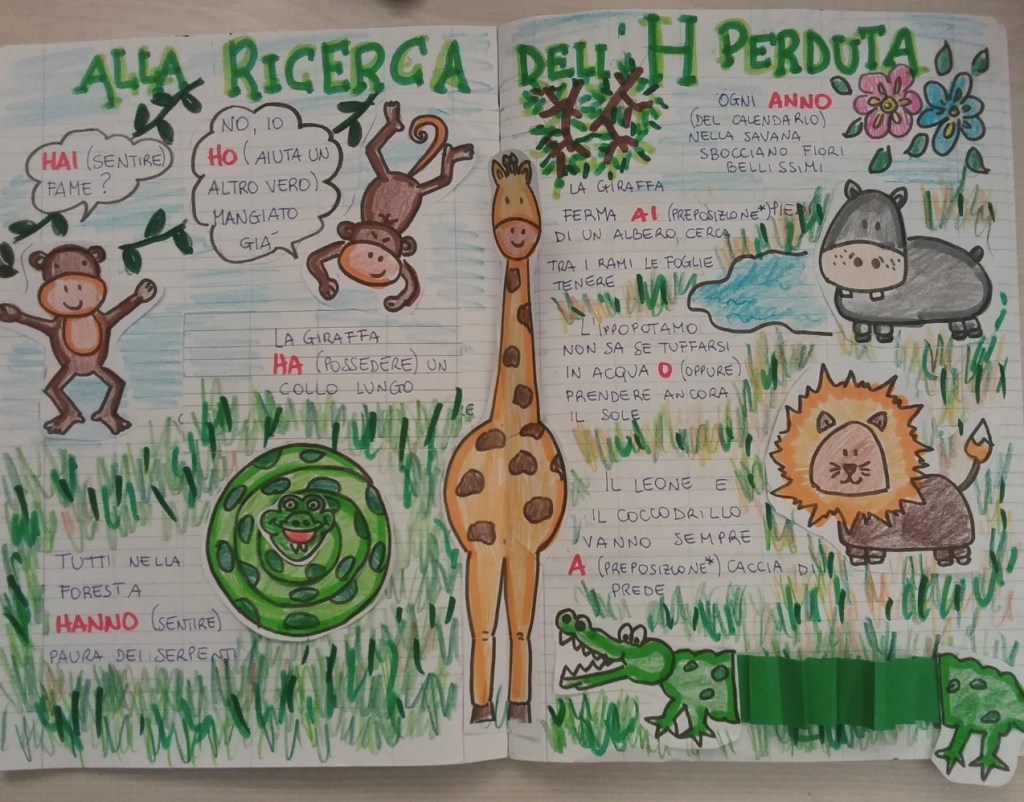 ALLA RICERCA DELL'H PERDUTA
HAI (SENTIRE)
FAME?
NO, IO
HO (AIUTA UN
ALTRO VERO)
MANGIATO
GIÀ
LA GIRAFFA
HA (POSSEDERE) UN
COLLO LUNGO
TUTTI NELLA
FORESTA
HANNO (SENTIRE)
PAURA DEI SERPENTI
OGNI ANNO
(DEL CALENDARIO)
NELLA SAVANA
SBOCCIANO FIORI
BELLISSIMI
LA GIRAFFA
FERMA AI (PREPOSIZIONE*)
DI UN ALBERO, CERCA
TRA I RAMI LE FOGLIE
TENERE
L'IPPOPOTAMO
NON SA SE TUFFARSI
IN ACQUA O (OPPURE)
PRENDERE ANCORA
IL SOLE
IL LEONE E
IL COCCODRILLO
VANNO SEMPRE
A (PREPOSIZIONE*) CACCIA DI
PREDE